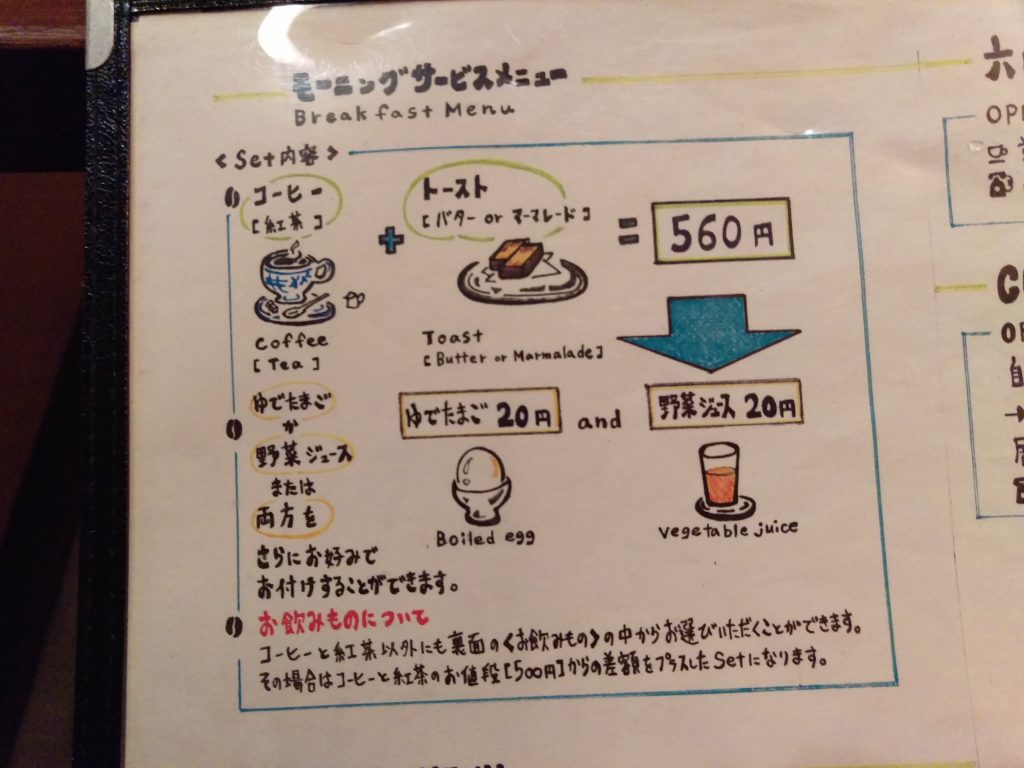 モーニングサービスメニュー
Breakfast Menu
<Set内容>
コーヒー
[紅茶]
+
トースト
[バター or マーマレード]
=
560円
Coffee
[Tea]
Toast
[Butter or Marmalade]
ゆでたまご
か
野菜ジュース
または
両方を
さらにお好みで
お付けすることができます。
ゆでたまご 20円
and
野菜ジュース 20円
Boiled egg
vegetable juice
お飲みものについて
コーヒーと紅茶以外にも裏面の<お飲みもの>の中からお選びいただくことができます。
その場合はコーヒーと紅茶のお値段[500円]からの差額をプラスしたSetになります。
六
OPE